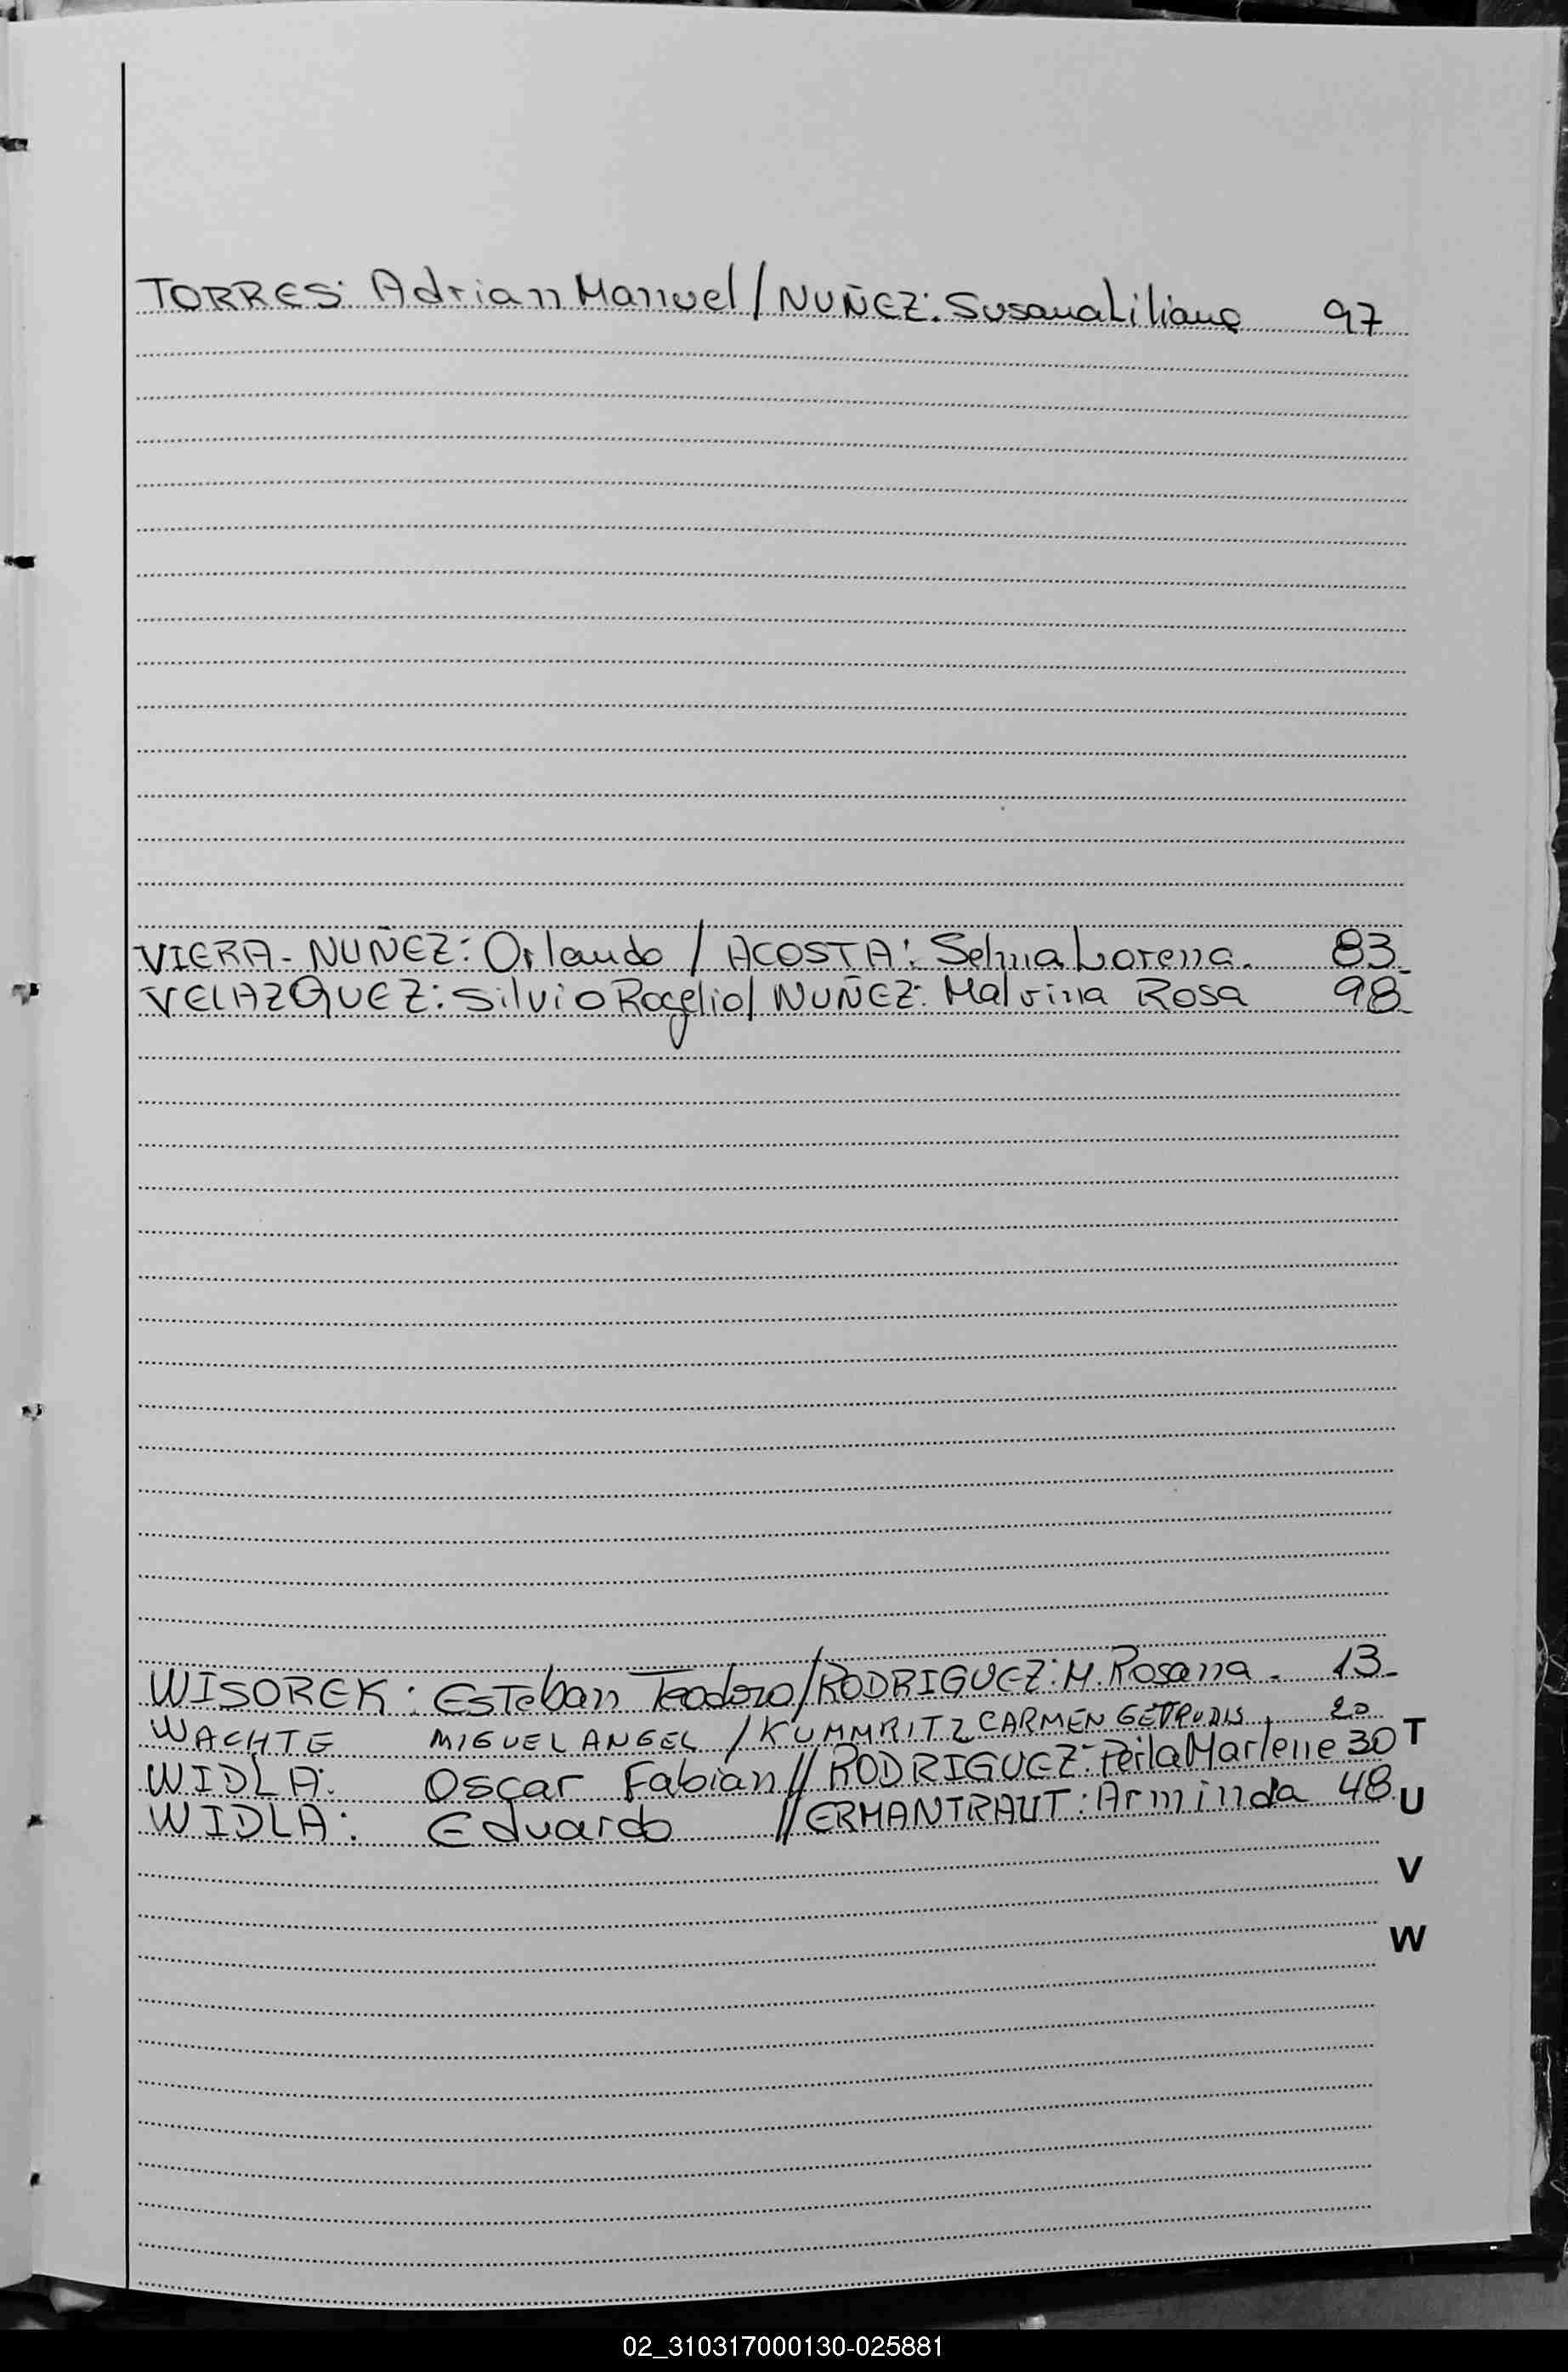 TORRES: Adrian Manuel / NUÑEZ: Susana Liliana 97
VIERA - NUÑEZ: Orlando / ACOSTA: Selmia Lorena. 83
VELAZQUEZ: Silvio Rogelio / NUÑEZ: Malvina Rosa 98
WISOREK: Esteban Teodoro / RODRIGUEZ: M. Rosana. 13
WACHTE MIGUEL ANGEL / KUMMRITZ CARMEN GETRUDIS. 20
WIDLA: Oscar Fabian // RODRIGUEZ: Peila Marlene 30
T
WIDLA: Eduardo // ERMANTRAUT: Arminda 48
U
V
W
02_310317000130-025881